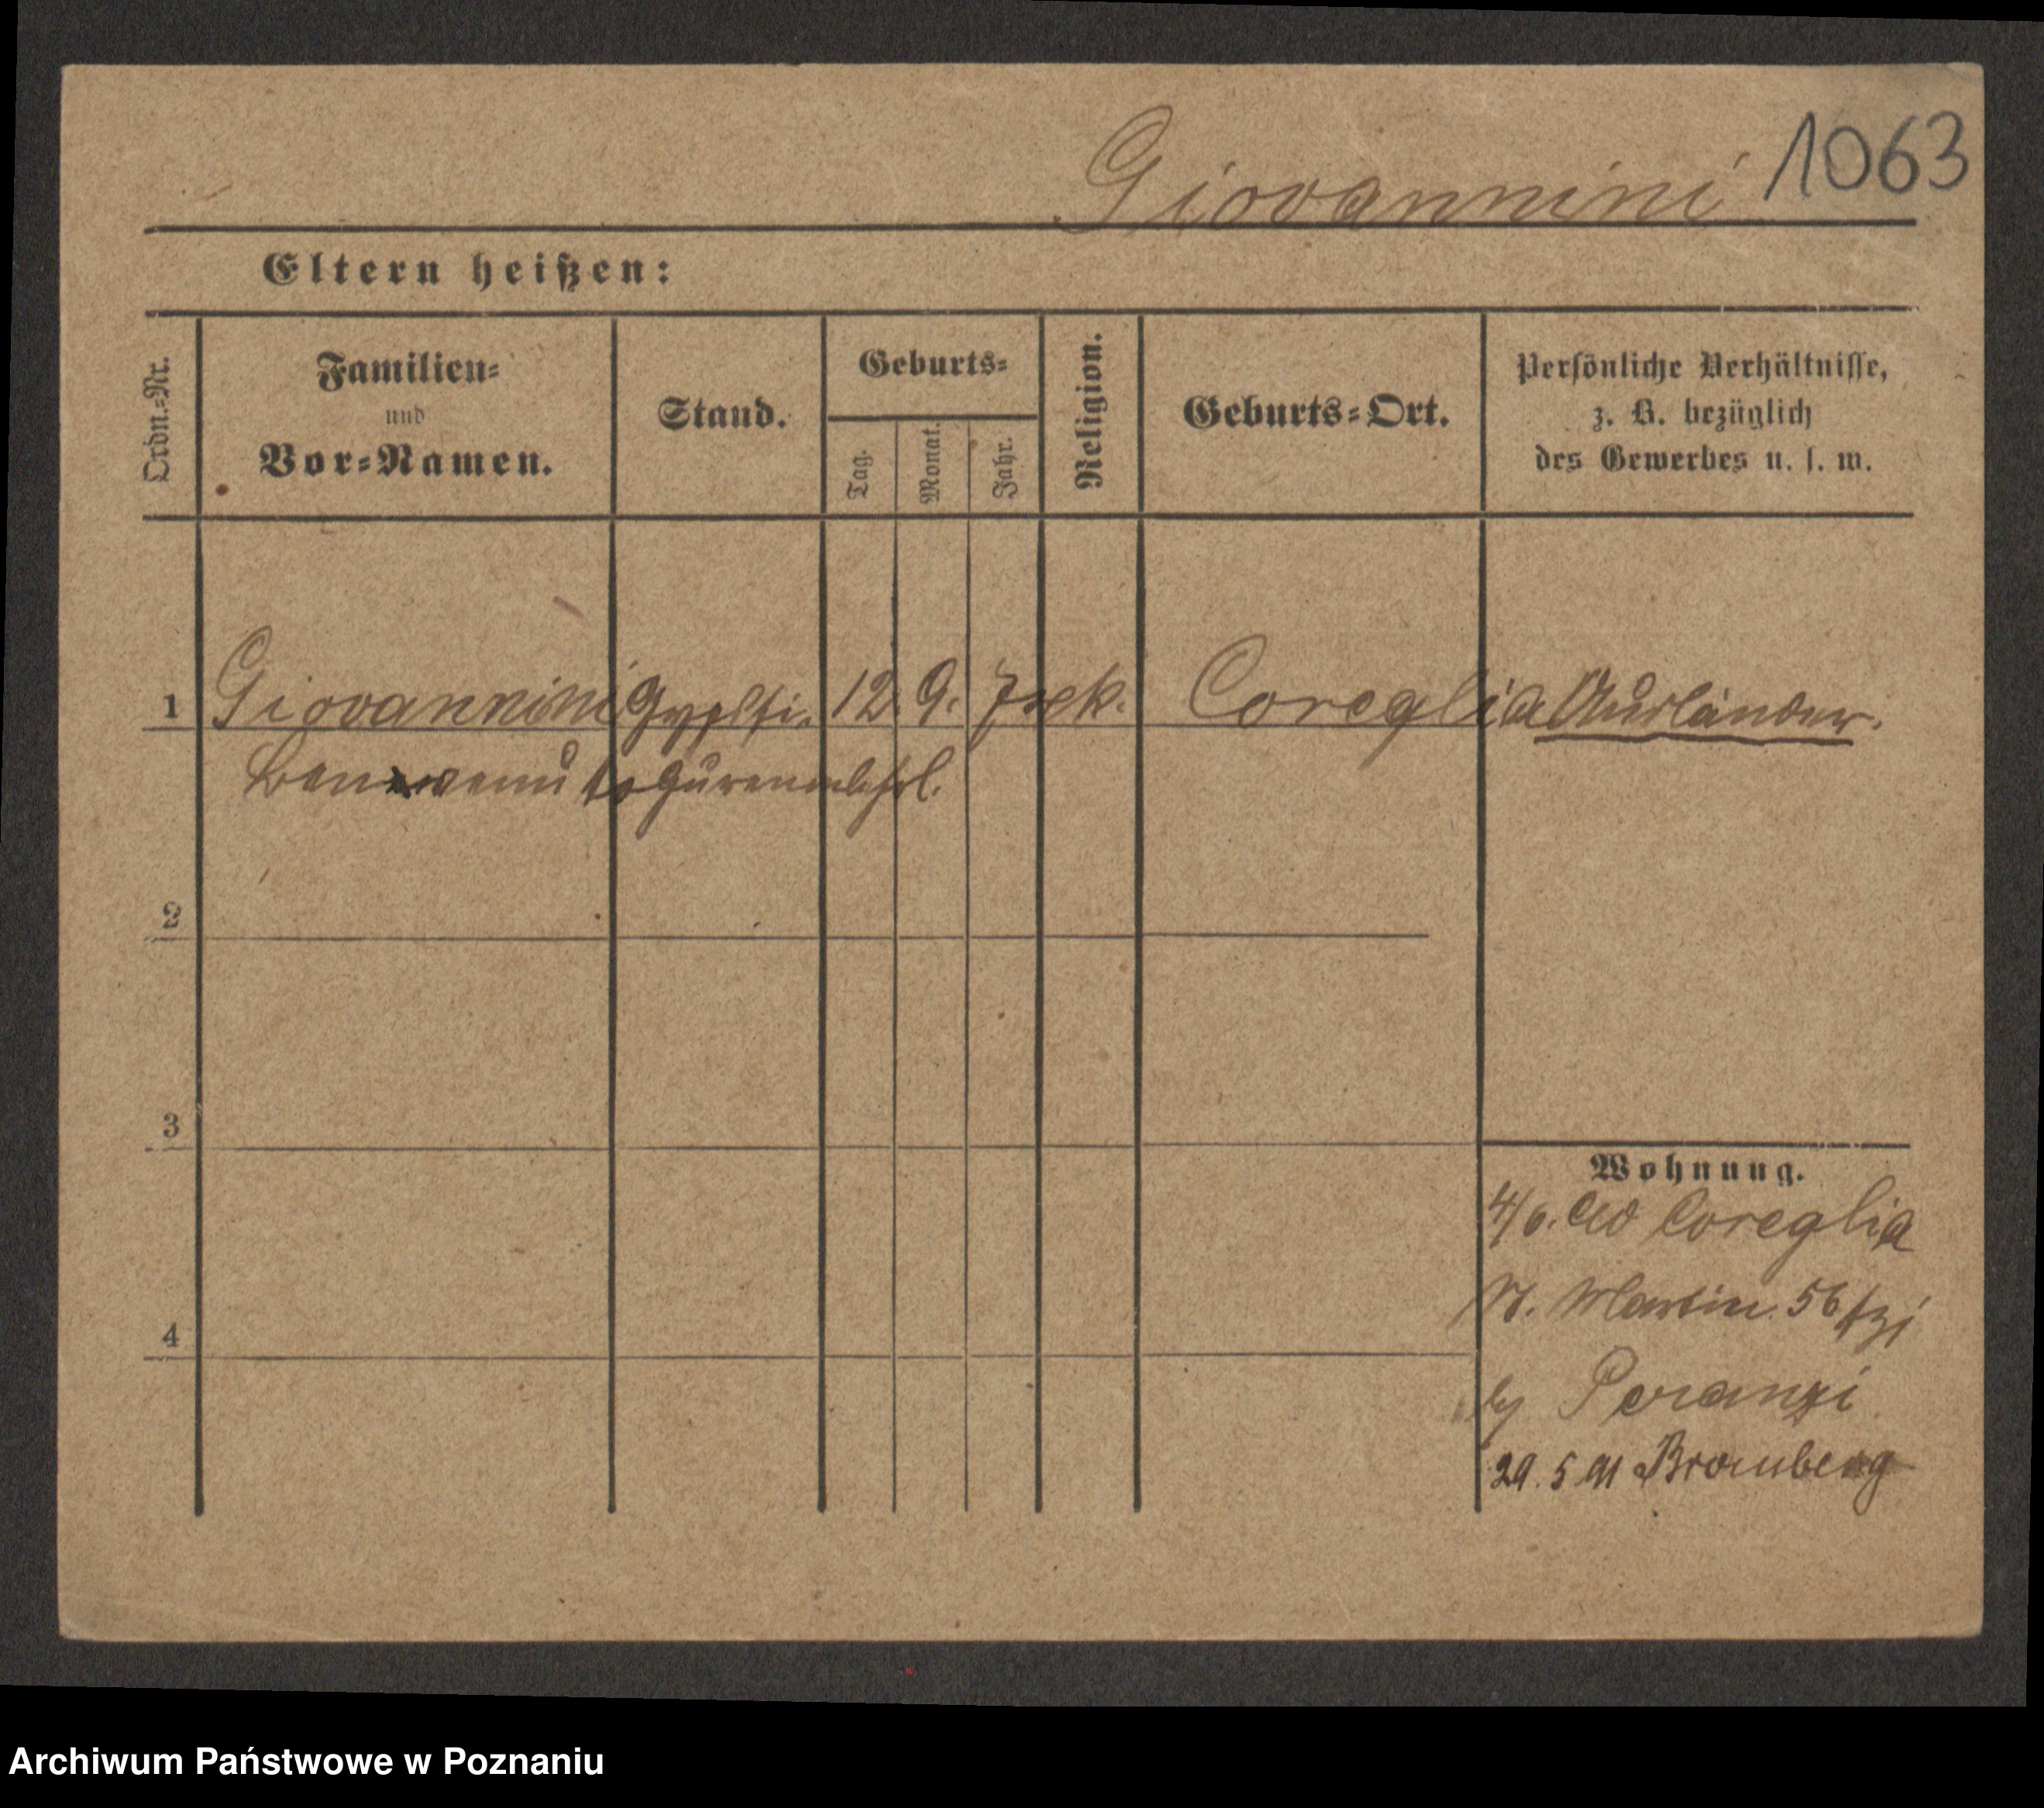 Giovannini 1063
Eltern heißen:
Ordn.=Nr.
Familien=
und
Vor=Namen.
Stand.
Geburts=
Tag.
Monat.
Jahr.
Religion.
Geburts=Ort.
Persönliche Verhältnisse,
z. B. bezüglich
des Gewerbes u. s. w.
1 Giovannini Gypsfi= 12. 9. 70 k. Coreglia Ausländer.
Benvenuto gurenm
2
3
4
Wohnung.
4/6. Coreglia
St. Martin 56
by Peranzi
29. 5 91 Bromberg
Archiwum Państwowe w Poznaniu